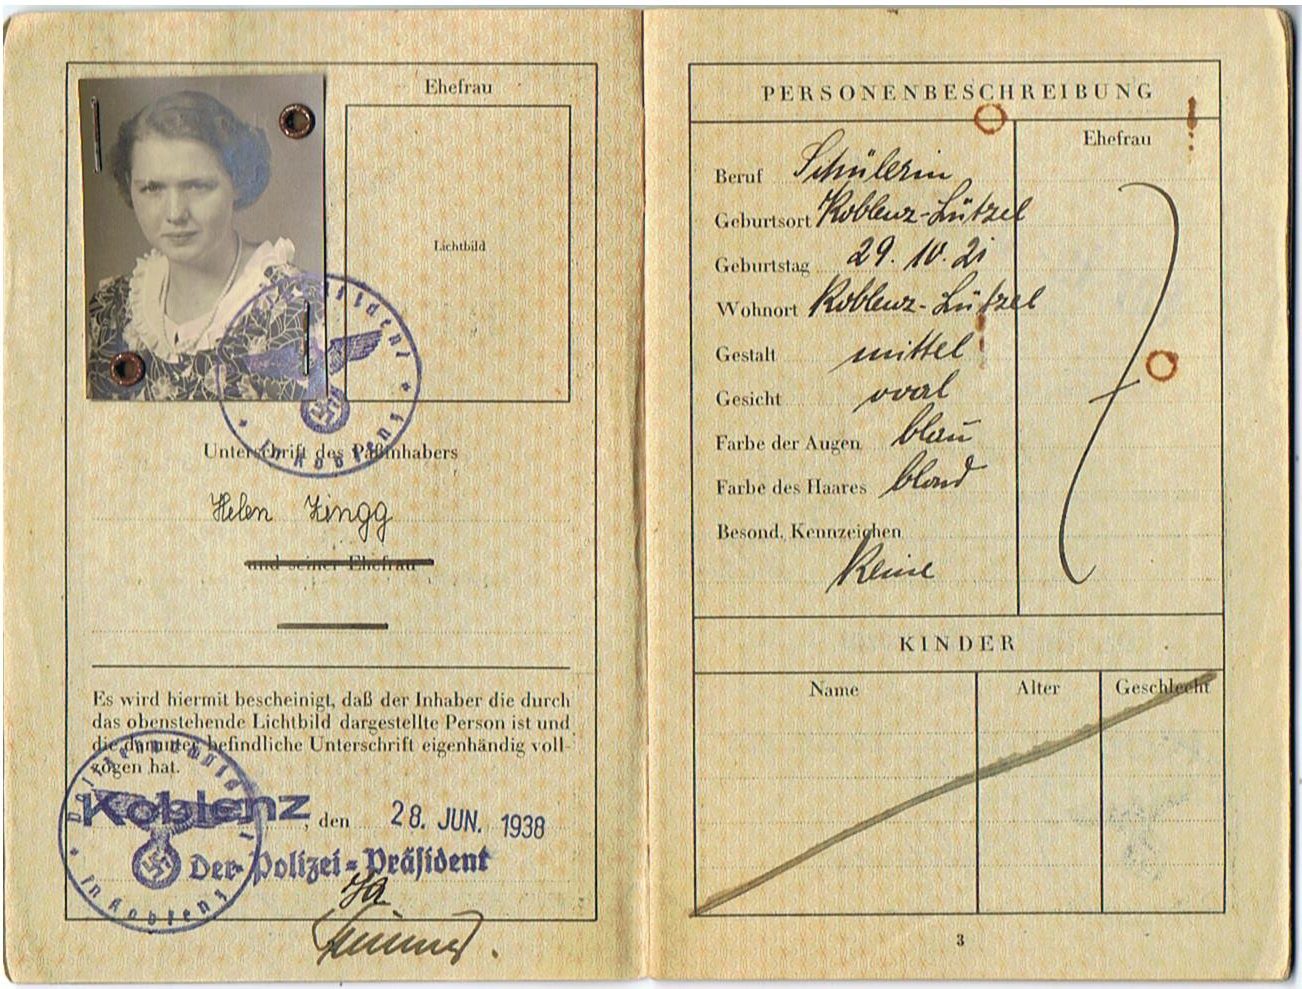 Ehefrau
Lichtbild
Polizeipräsident
in Koblenz
Unterschrift des Paßinhabers
Helen Zingg
und seiner Ehefrau
Es wird hiermit bescheinigt, daß der Inhaber die durch
das obenstehende Lichtbild dargestellte Person ist und
die darunter befindliche Unterschrift eigenhändig voll-
zogen hat.
Koblenz, den 28. JUN. 1938
Der Polizei=Präsident
in Koblenz
PERSONENBESCHREIBUNG
Ehefrau
Beruf Schülerin
Geburtsort Koblenz-Lützel
Geburtstag 29. 10. 21
Wohnort Koblenz-Lützel
Gestalt mittel
Gesicht oval
Farbe der Augen blau
Farbe des Haares blond
Besond. Kennzeichen
Keine
KINDER
Name Alter Geschlecht
3